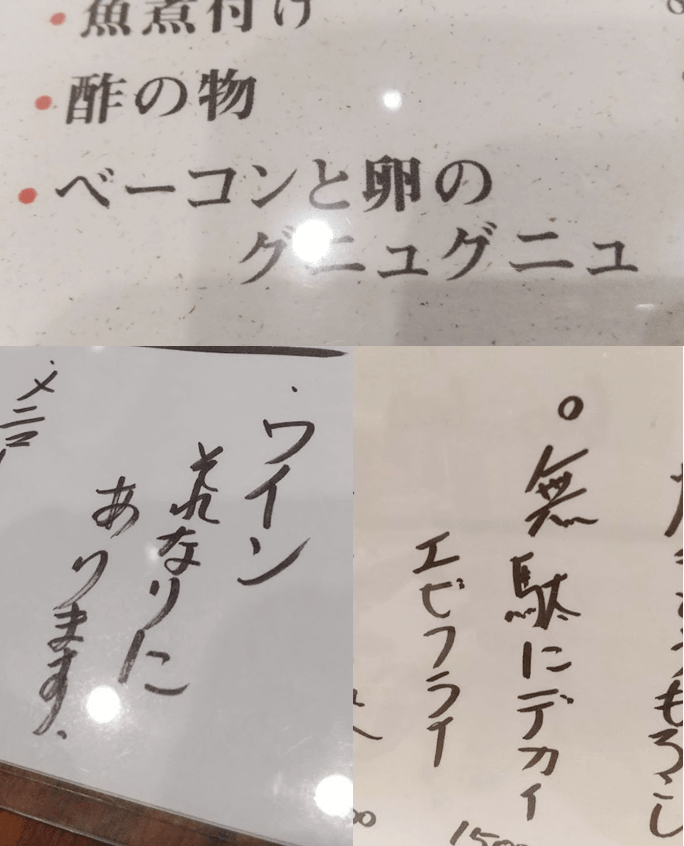 ・魚煮付け
・酢の物
・ベーコンと卵の
グニュグニュ
・ワイン
それなりに
あります。
メニュー
もろこし
○無駄にデカイ
エビフライ